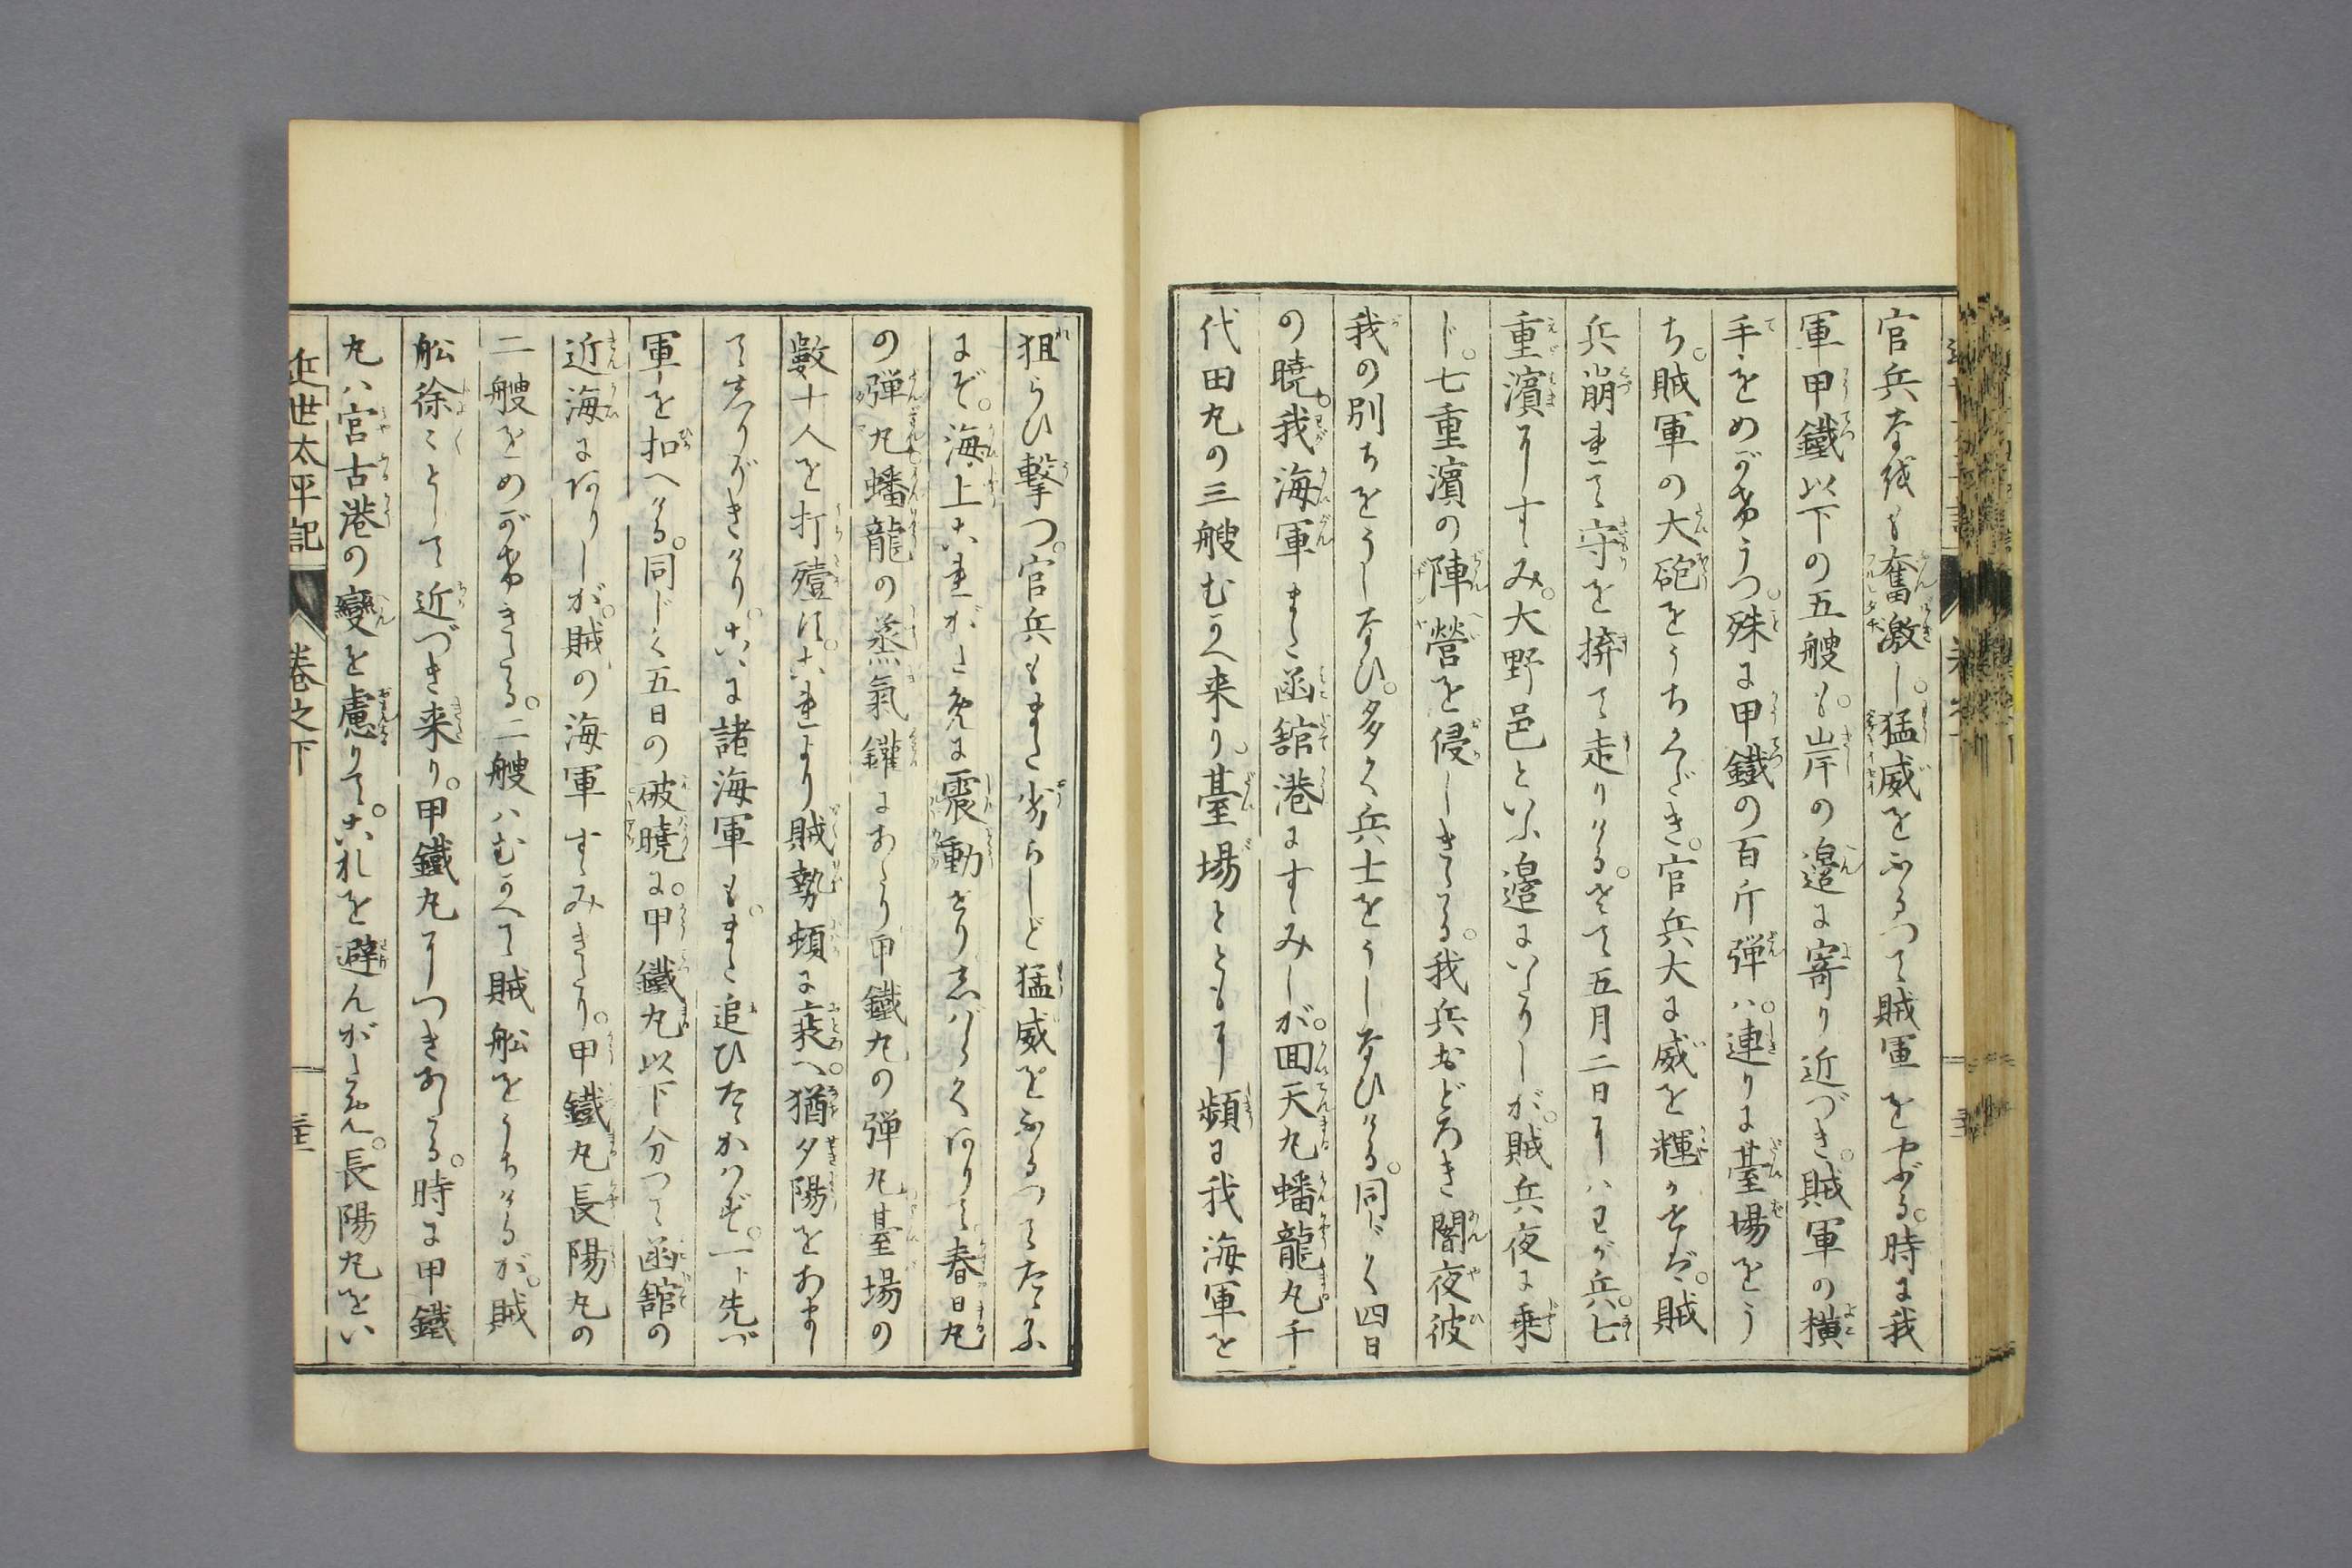 官兵なほも奮激し。猛威をふるつて賊軍をやぶる。時に我
軍甲鐵以下の五艘も。岸の邉に寄り近づき。賊軍の横
手をめがけうつ。殊に甲鐵の百斤弾ハ。連りに臺場をう
ち。賊軍の大砲をうちくだき。官兵大に威を輝かせバ。賊
兵崩れて守を捺て走りける。さて五月二日にハわが兵。七
重濱にすゝみ。大野邑といふ邉にいたりしが。賊兵夜に乗
じ。七重濱の陣營を侵しきたる。我兵おどろき闇夜彼
我の別ちをうしなひ。多く兵士をうしなひける。同じく四日
の曉。我海軍また函舘港にすゝみしが。回天丸蟠龍丸千
代田丸の三艘むかへ来り。臺場とともに頻に我海軍を
狙らひ撃つ。官兵もまた劣らじと猛威をふるつてたゝかふ
にぞ。海上これがために震動せりしばらくありて。春日丸
の弾丸蟠龍の蒸氣鑵にあたり甲鐵丸の弾丸臺場の
數十人を打殪す。これより賊勢頓に衰へ。猶夕陽をおまし
てしりぞきけり。こゝに諸海軍も。また追ひたゝかはず。一ト先づ
軍を扣へける。同じく五日の破曉に。甲鐵丸以下分つて函舘の
近海にありしが。賊の海軍すゝみきたり。甲鐵丸長陽丸の
二艘をめがけきたる。二艘ハむかへて賊舩をうちけるが。賊
舩徐々として近づき来り。甲鐵丸につきあたる。時に甲鐵
丸ハ宮古港の變を慮りて。これを避んがため。長陽丸をい
近世太平記　巻之下